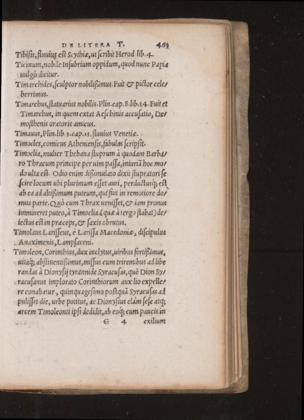 DE LITERA T. 463
Tibisis, fluuius est Scythiæ, ut scribit Herod lib. 4.
Ticinum, nobile Insubrium oppidum, quod nunc Papia
uulgò dicitur.
Timarchides, sculptor nobilissimus. Fuit & pictor cele
berrimus.
Timarchus, statuarius nobilis. Plin. cap. 8. lib. 34. Fuit et
Timarchus, in quem extat Aeschinis accusatio, De-
mosthenis oratoris amicus.
Timauus, Plin. lib. 3. cap. 18. fluuius Venetiæ.
Timocles, comicus Atheniensis, fabulas scripsit.
Timoclia, mulier Thebana stuprum à quodam Barba
ro Thracum principe per uim passa, iniuriã hoc mo
do ulta est. Odio enim dissimulato dixit stupratori se
scire locum ubi plurimum esset auri, perductusq́; est
ab ea ad altissimum puteum, qui fuit in remotiore do
mus parte. Quò cum Thrax uenisset, & iam pronus
immineret puteo, à Timoclia (quæ à tergo stabat) de
iectus est in præceps, & saxis obrutus.
Timolaus Larisseus, è Larissa Macedoniæ, discipulus
Anaximenis, Lampsaceni.
Timoleon, Corinthius, dux inclytus, uiribus fortissimus,
uitaq́; abstinentissimus, missus cum triremibus ad libe
randas à Dionysij tyrannide Syracusas, quẽ Dion Sy
racusanus implorato Corinthiorum auxilio expelle-
re conabatur, quinquagesimo postquã Syracusas ad
pulisset die, urbe potitur, ac Dionysius etiam sese atq́;
arcem Timoleonti ipsi dedidit, ab eoq́; cum paucis in
G 4 exilium